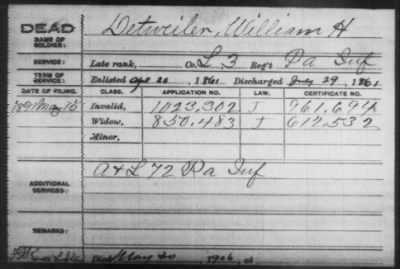 DEAD
Detweiler, William H
NAME OF SOLDIER:
SERVICE:
Late rank, Co. L, 3 Reg't Pa Inf
TERM OF SERVICE:
Enlisted Apr 20, 1861 Discharged July 29, 1861
DATE OF FILING. CLASS. APPLICATION NO. LAW. CERTIFICATE NO.
1891 May 15 Invalid, 1023,302 J 761,694
Widow, 850,483 J 617,532
Minor,
ADDITIONAL SERVICES:
A & L 72 Pa Inf
REMARKS:
Died May 20, 1906, at